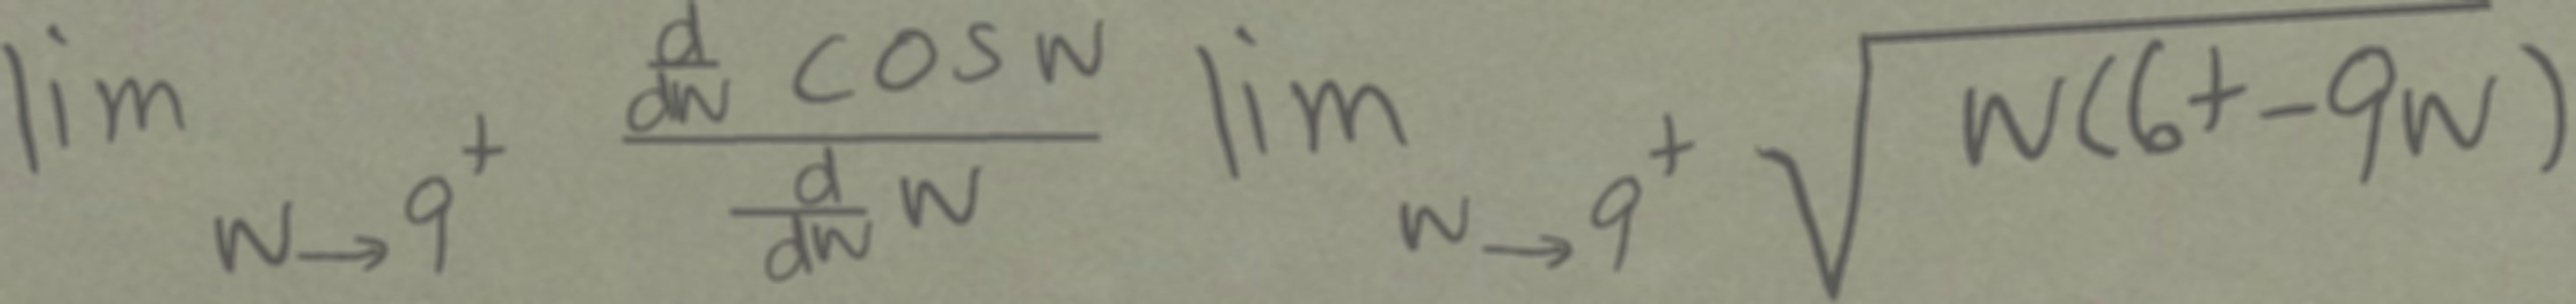 \lim_{w \to 9^+} \frac{\frac{d}{dw} \cos w}{\frac{d}{dw} w} \lim_{w \to 9^+} \sqrt{w(6t-9w)}